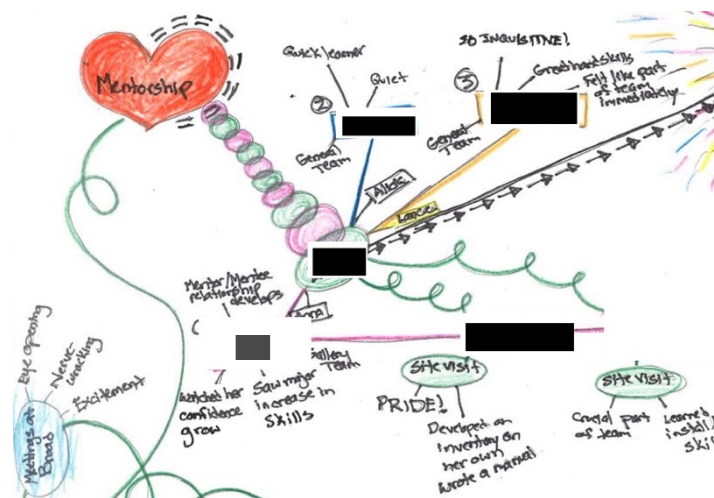 Mentorship
Quick learner
Quiet
2
General
Team
SO INQUISITIVE!
Great hand skills
Felt like part
of team
immediately
3
General
Team
Mentor/Mentee
relationship
develops
Gallery
Team
Watched her
confidence
grow
Saw major
increase in
skills
Site visit
PRIDE!
Developed an
inventory on
her own
wrote a manual
Site visit
Crucial part
of team
Learned
install
Eye opening
Nerve-
wracking
Excitement
Meetings at
Broad